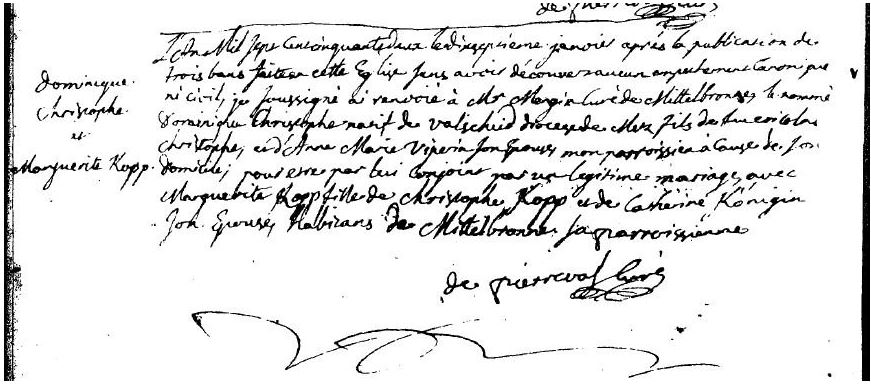 Dominique
Christophe
et
Marguerite Kopp
L'An Mil sept Cent cinquante deux le dix septieme janvier après la publication de
trois bans faite en cette Eglise sans avoir découvers aucun empechement Canonique
ni civil, je soussigné ai renvoié à Mr Mangin Curé de Mittelbronne, le nommé
Dominique Christophe natif de Valscheid diocese de Metz fils de
Christophe, et d'Anne Marie Viperin son Epouse, mon paroissien à Cause de son
domicile, pour estre par lui Conjoint par un legitime mariage, avec
Marguerite Kopp fille de Christophe Kopp et de Catherine Königin
son Epouse, habitans de Mittelbronne sa parroissienne
de pierreval Curé